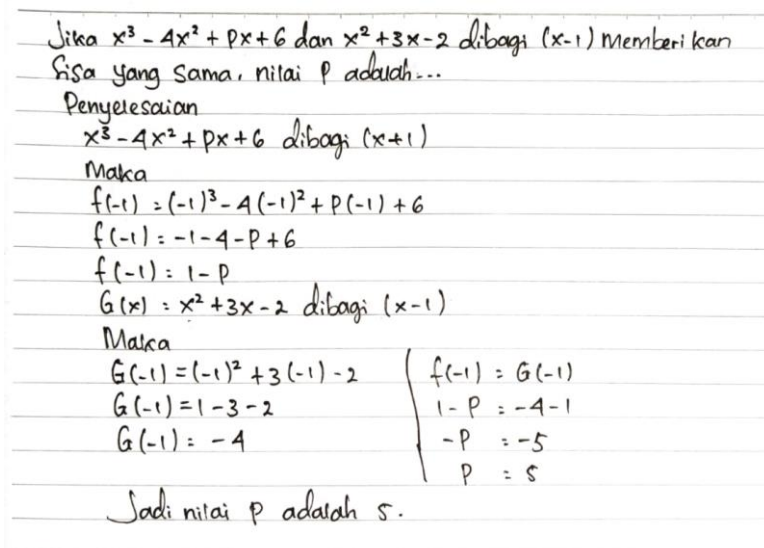 Jika x³ - 4x² + px + 6 dan x² + 3x - 2 dibagi (x-1) Memberikan
Sisa yang sama, nilai p adalah...
Penyelesaian
x³ - 4x² + px + 6 dibagi (x+1)
Maka
f(-1) = (-1)³ - 4(-1)² + p(-1) + 6
f(-1) = -1 - 4 - p + 6
f(-1) = 1 - p
G(x) = x² + 3x - 2 dibagi (x-1)
Maka
G(-1) = (-1)² + 3(-1) - 2
G(-1) = 1 - 3 - 2
G(-1) = -4
f(-1) = G(-1)
1 - p = -4 - 1
-p = -5
p = 5
Jadi nilai p adalah 5.